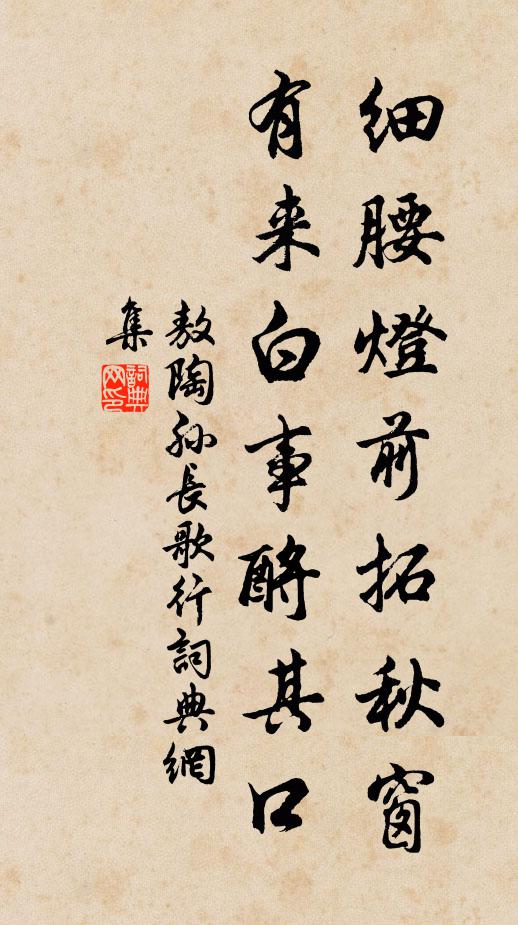 細腰燈前拓秋窗
有来白事酹其口
敖陶孙長歌行詞典網
集
詞典网印